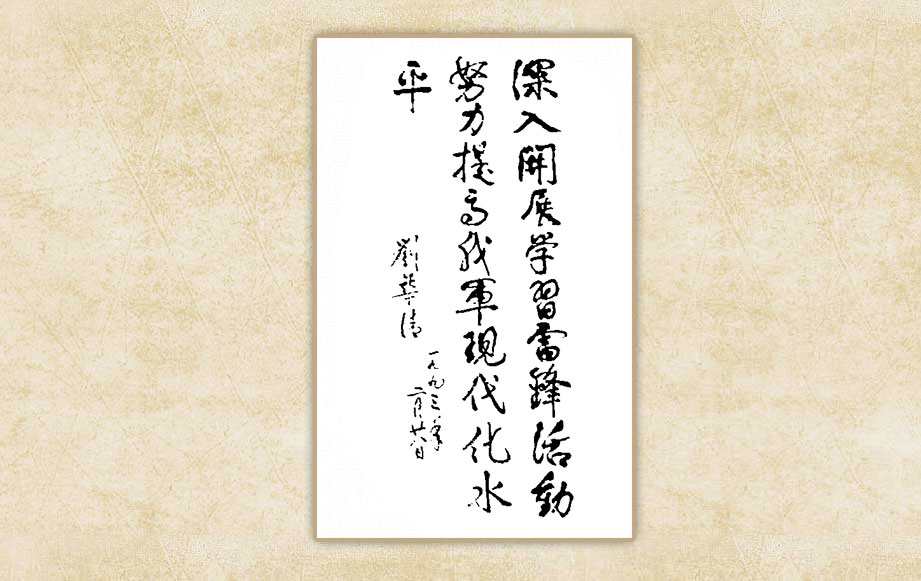 深入開展学習雷鋒活動
努力提高我軍現代化水
平
劉華清
一九九三年
二月廿六日